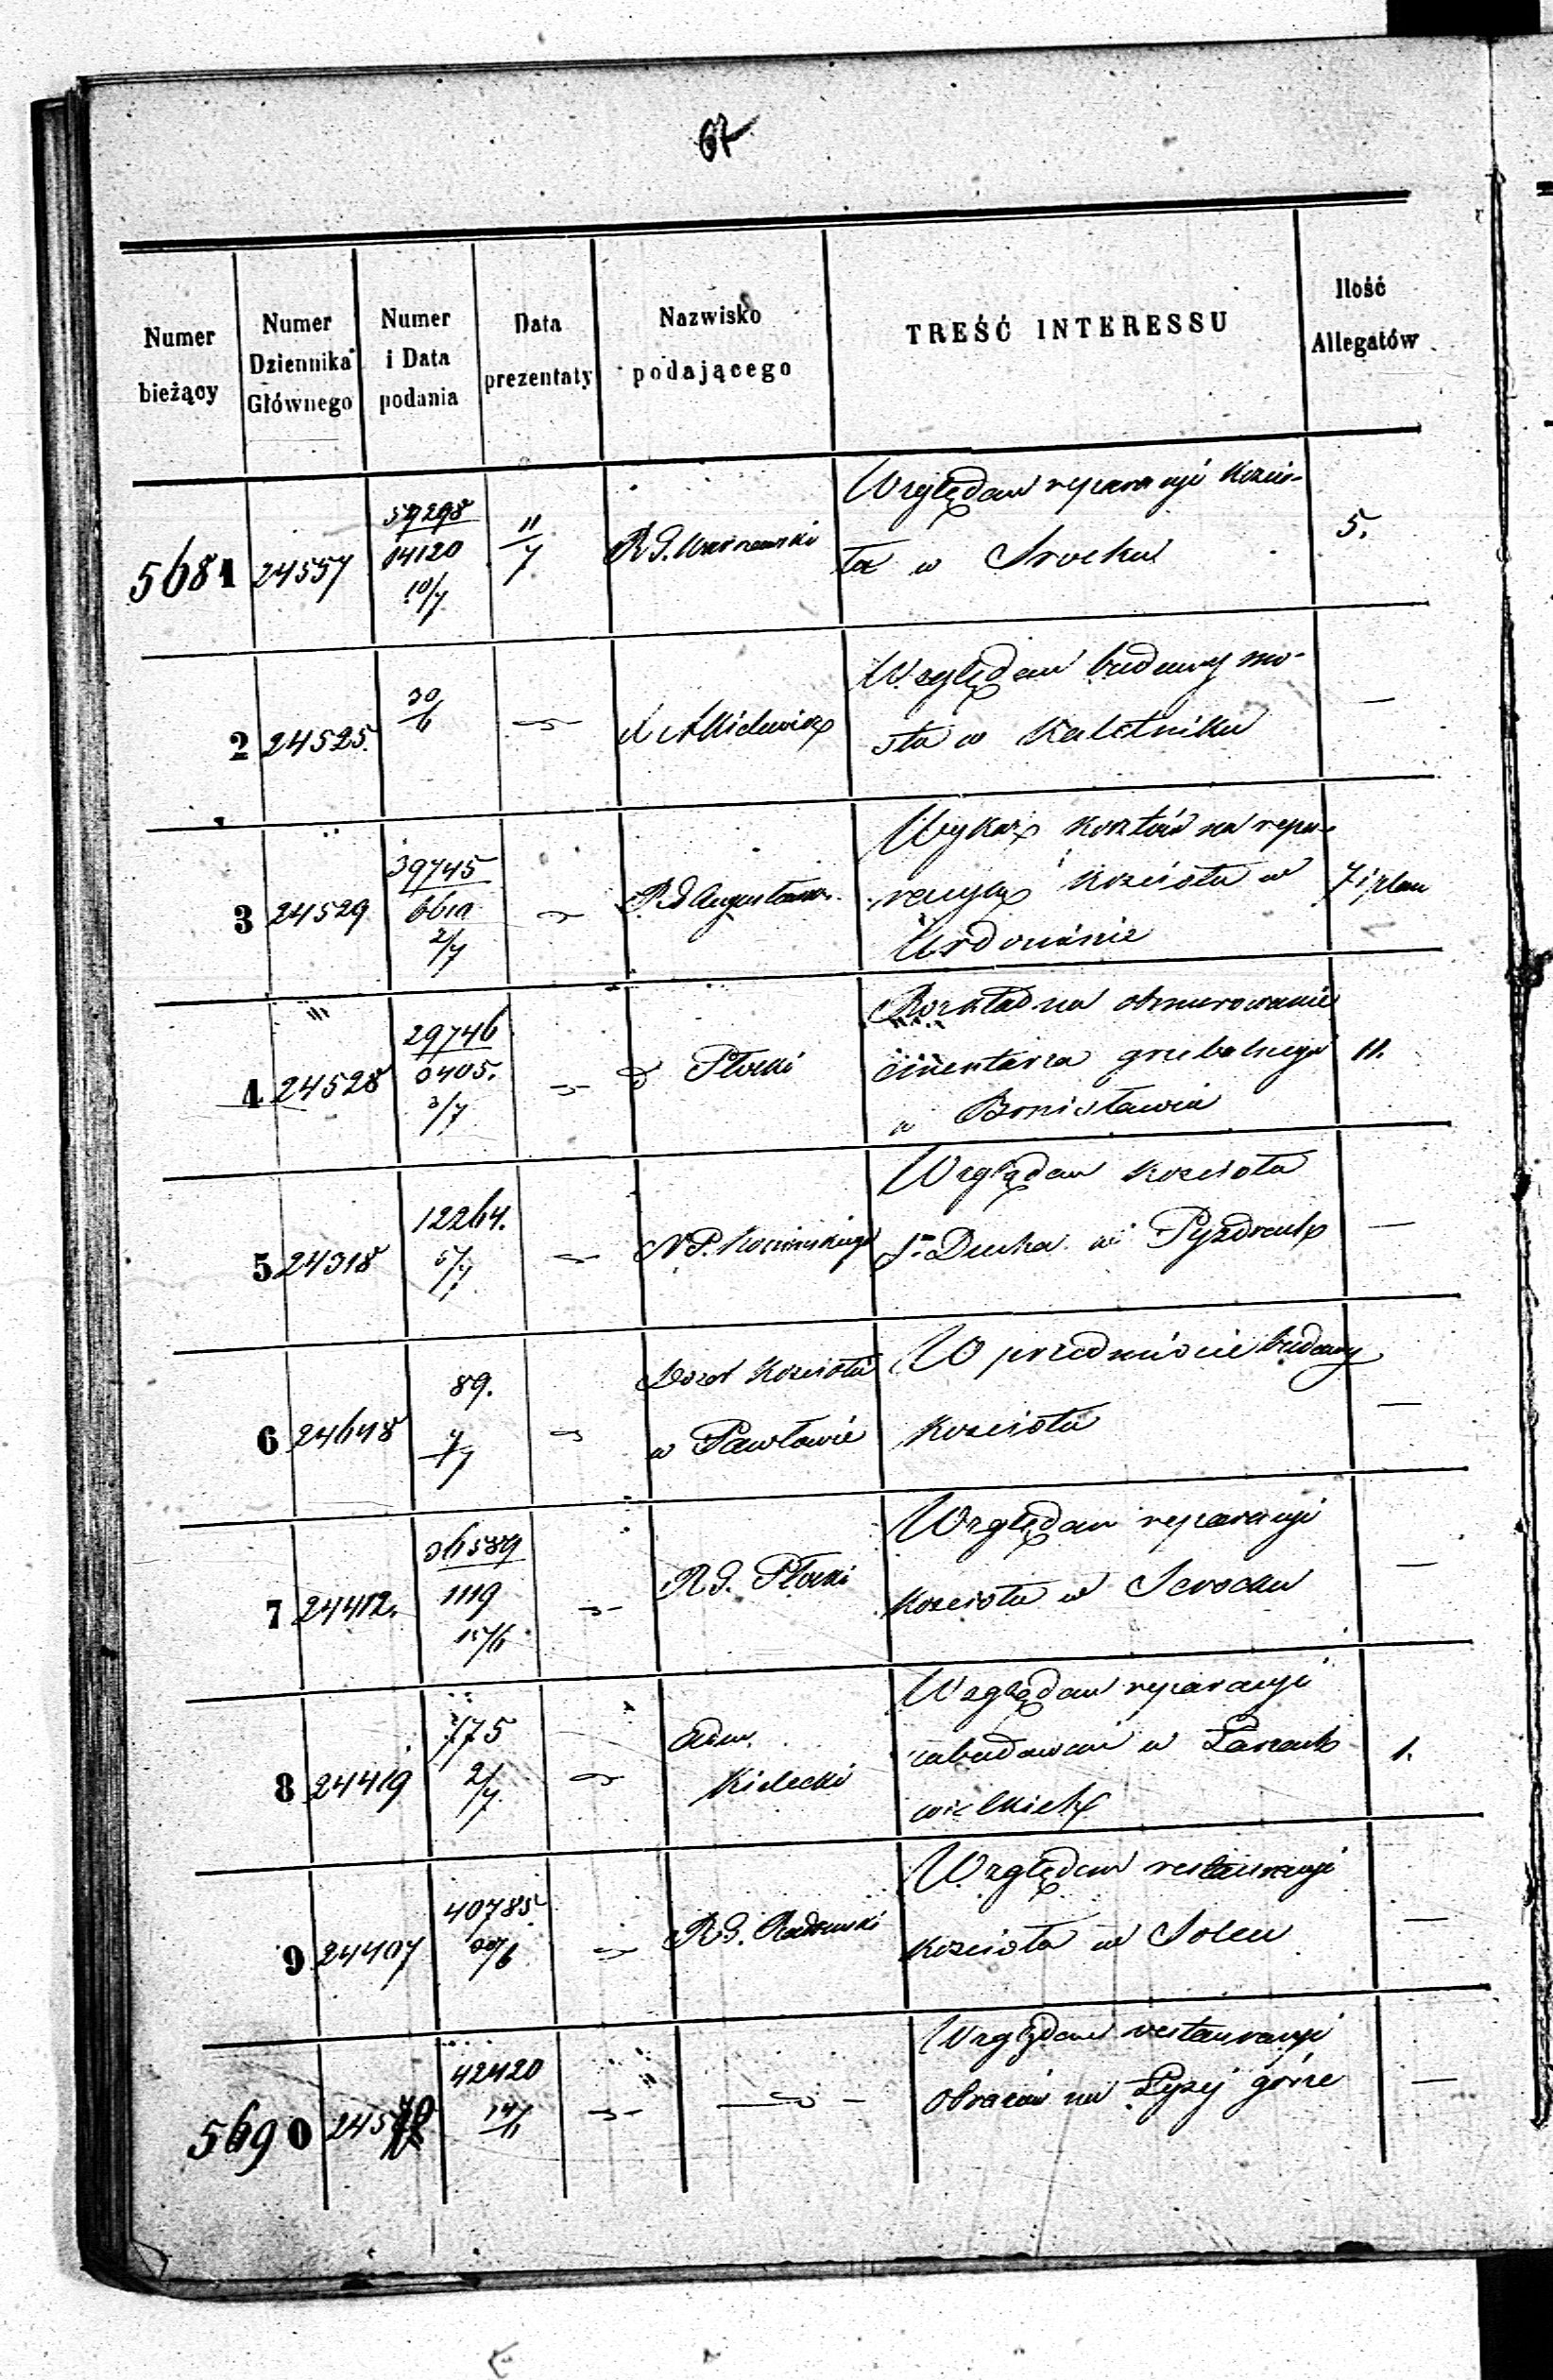 67
Numer bieżący
Numer Dziennika Głównego
Numer i Data podania
Data prezentaty
Nazwisko podającego
TREŚĆ INTERESSU
Ilość Allegatów
5681 24557 59298 11/7 R G. Warszawski Względem reparacyi Kościo- 5.
14120 ła w Srocku
10/7
2 24525. 30/6 Względem budowy mo-
sta w Kaletniku —
3 24529 39745 R G Augustows. Wykaz kosztów na repa-
racyą Kościoła w 7 i plan
2/7 Urdominie
4 24528 29746 Rozkład na obmurowanie
0405. Płocki cmentarza grzebalnego 11.
3/7 w Bonisławiu
5 24318 12264. N P. Względem kościoła
5/7 Sgo Ducha w Pyzdrach —
6 24648 89. Dozór Kościoła W przedmiocie budowy
4/7 w Pawłowie Kościoła —
7 24412. 36589 R G. Płocki Względem reparacyi
1119 Kościoła w Serocku —
15/6
8 24419 775 Adm. Względem reparacyi
2/7 Kielecki zabudowań w Łazach 1.
wielkich
9 24407 40785 R G. Radomski Względem restauracyi
30/6 Kościoła w Solcu —
5690 245 42420 Względem restauracyi
14/6 obrazów na Łysej górze —